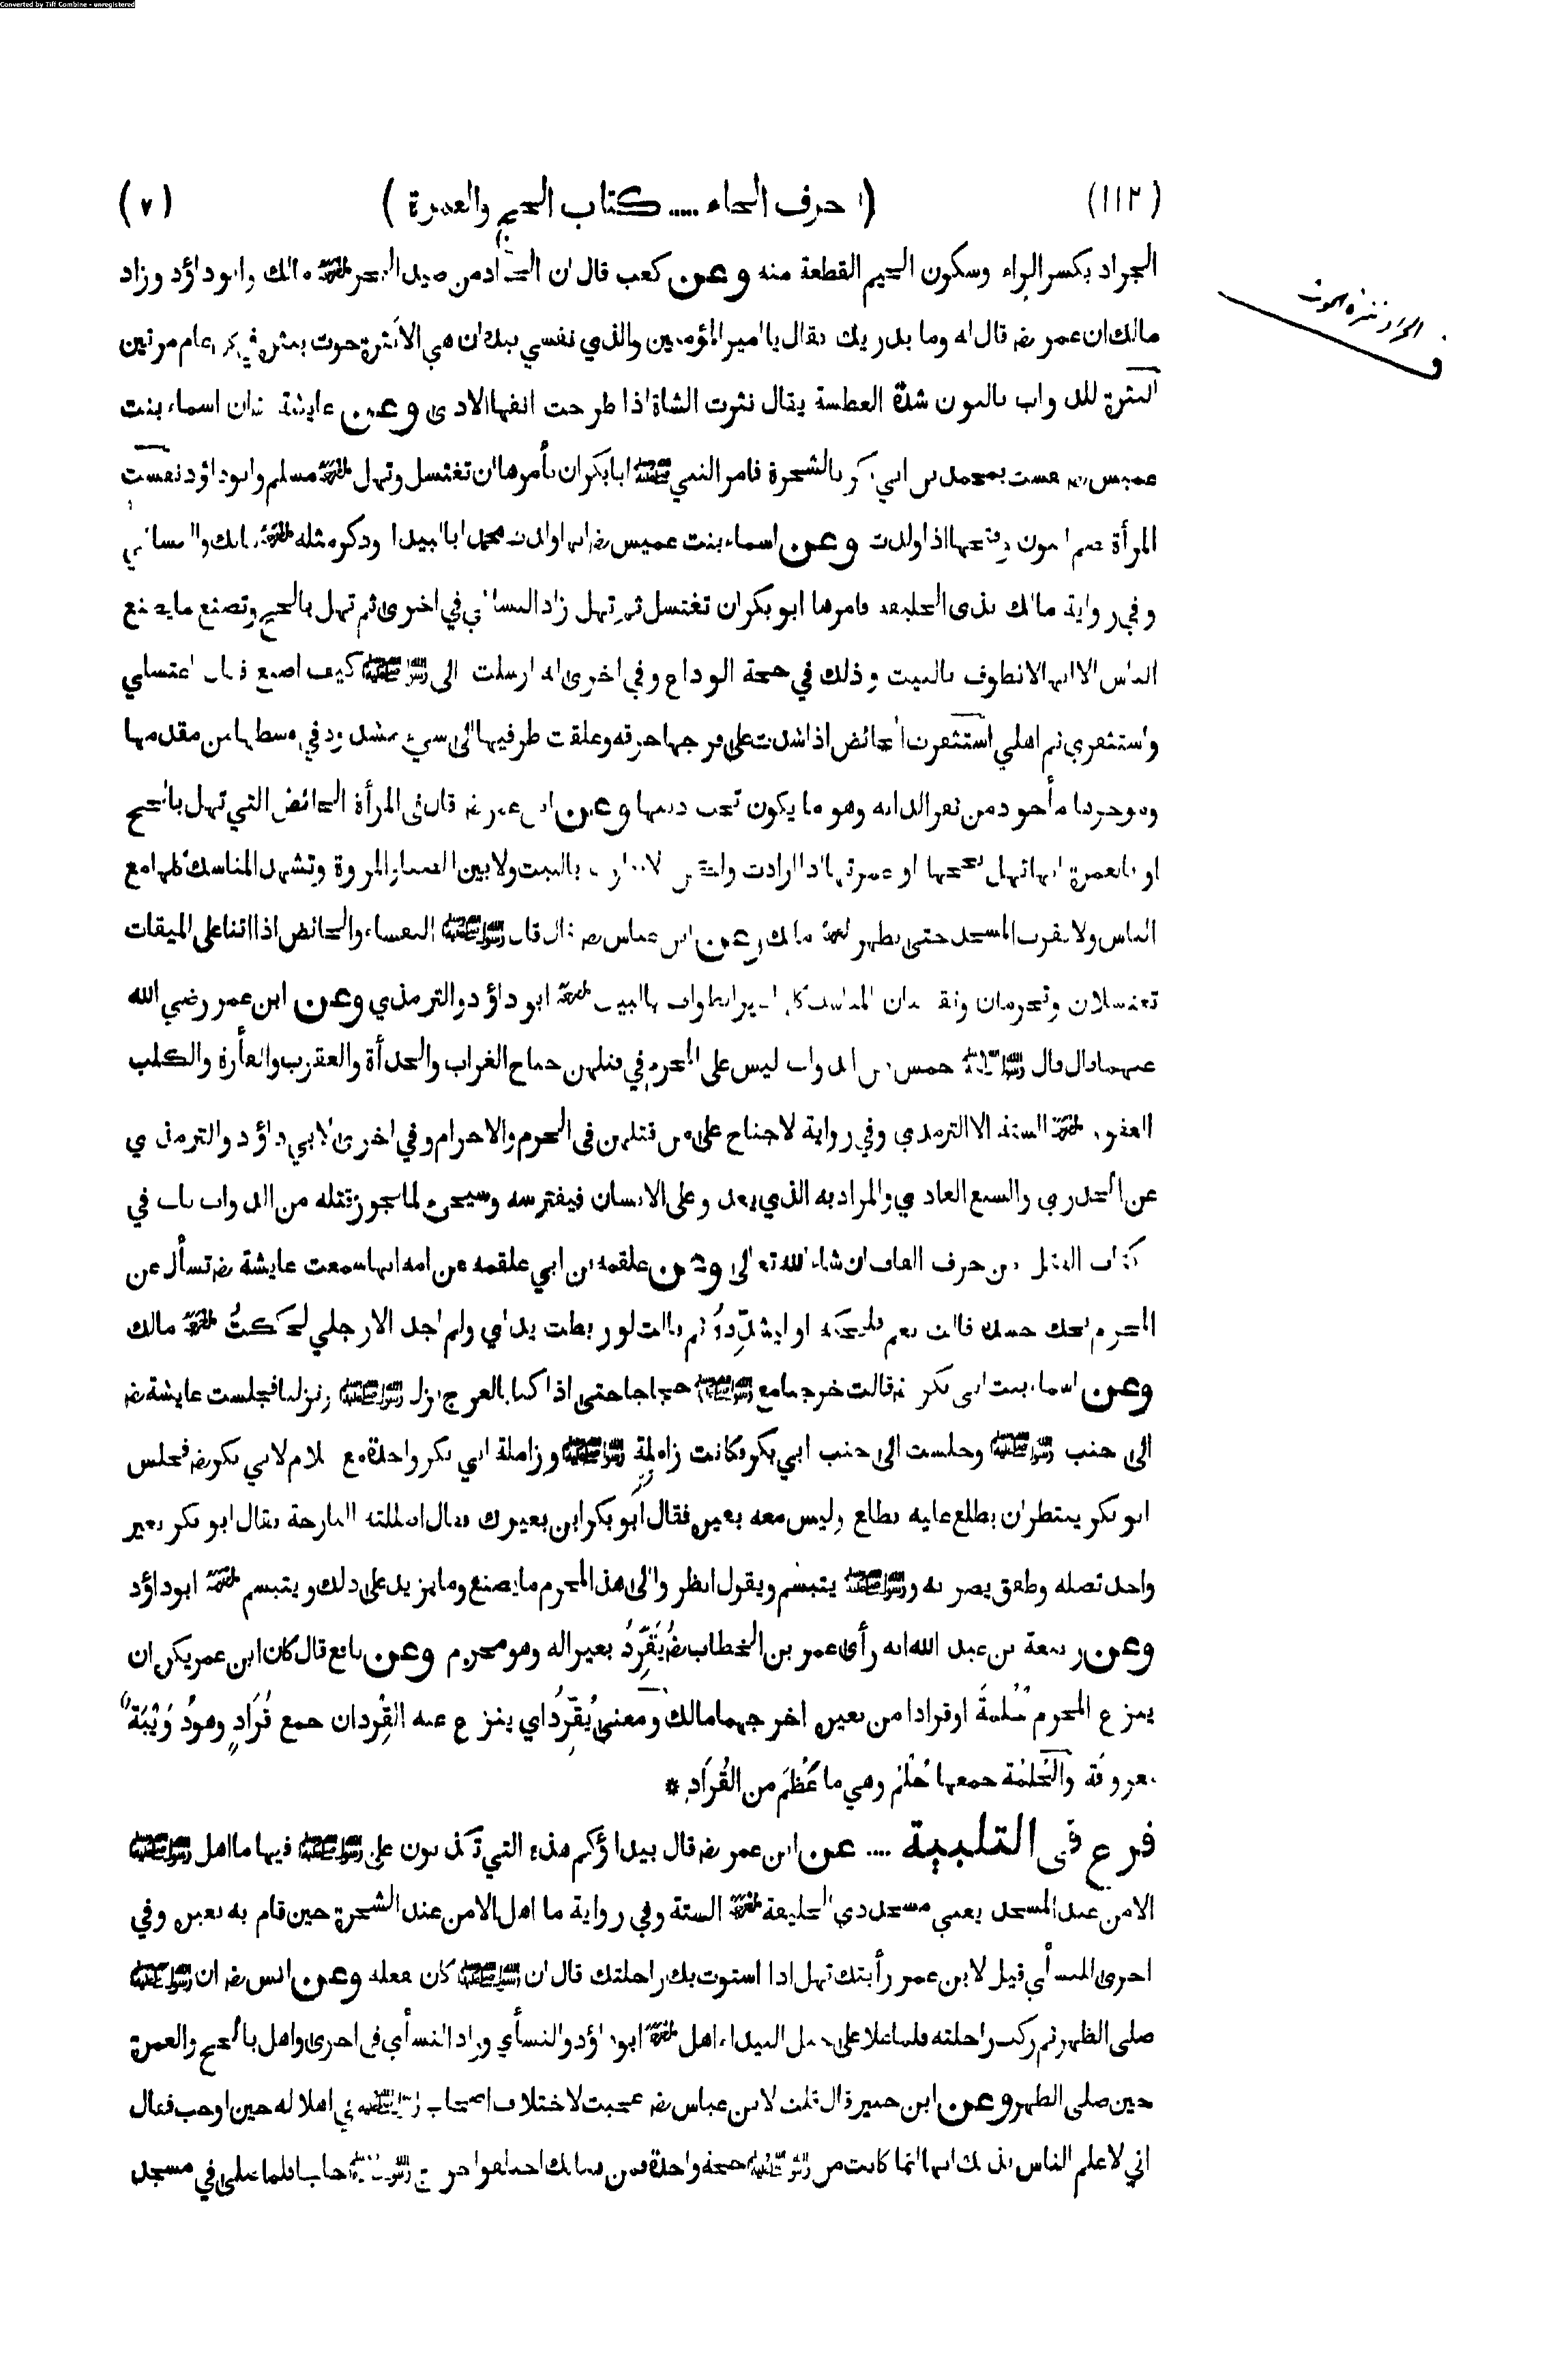 Converted by Tiff Combine - unregistered
(١١٢) (حرف الحاء ..... كتاب الحج والعمرة) (٧)
الجراد بكسر الراء وسكون الجيم القطعة منه وعن كعب قال ان الجراد من صيد البحر مالك وابوداؤد وزاد
مالك ان عمر رض قال له وما يدريك فقال يا امير المؤمنين والذي نفسي بيده ان هي الا نثرة حوت ينثره في كل عام مرتين
النثرة للدواب بالنون شدة العطسة يقال نثرت الشاة اذا طرحت انفها الاذى وعن عايشة ان اسماء بنت
عميس نفست بمحمد بن ابي بكر بالشجرة فامر النبي ﷺ ابا بكر ان يأمرها ان تغتسل وتهل مسلم وابوداؤد نفست
المرأة بضم النون وفتحها اذا ولدت وعن اسماء بنت عميس رض انها ولدت محمدا بالبيدا وذكر مثله مالك والنسائي
وفي رواية مالك بذى الحليفة فامرها ابو بكر ان تغتسل ثم تهل زاد النسائي في اخرى ثم تهل بالحج وتصنع ما يصنع
الناس الا انها لا تطوف بالبيت وذلك في حجة الوداع وفي اخرى له ارسلت الى رسول الله ﷺ كيف اصنع فقال اغتسلي
واستثفري ثم اهلي استثفرت الحائض اذا شدت على فرجها خرقة وعلقت طرفيها الى شيء مشدود في وسطها من مقدمها
وموخرها مأخوذ من ثفر الدابه وهو ما يكون تحت ذنبها وعن ابن عمر رض قال فى المرأة الحائض التي تهل بالحج
او بالعمرة انها تهل بحجها او عمرتها اذا ارادت ولكن لا تطوف بالبيت ولا بين الصفا والمروة وتشهد المناسك كلها مع
الناس ولا تقرب المسجد حتى تطهر مالك وعن ابن عباس رض قال قال رسول الله ﷺ النفساء والحائض اذا اتتا على الميقات
تغتسلان وتحرمان وتقضيان المناسك كلها غير الطواف بالبيت ابو داؤد والترمذي وعن ابن عمر رضي الله
عنهما قال قال رسول الله ﷺ خمس من الدواب ليس على المحرم في قتلهن جناح الغراب والحدأة والعقرب والفأرة والكلب
العقور الستة الا الترمذي وفي رواية لا جناح على من قتلهن فى الحرم والاحرام وفي اخرى لابي داؤد والترمذي
عن الخدري والسبع العادي والمراد به الذي يعدو على الانسان فيفترسه وسيجئ لما يجوز قتله من الدواب باب في
كتاب القتل من حرف القاف ان شاء الله تعالى وعن علقمه بن ابي علقمه عن امه انها سمعت عايشة رض تسأل عن
المحرم يحك جسده قالت نعم فليحكه او ليشدد ثم قالت لو ربطت يداي ولم اجد الا رجلي لحككتُ مالك
وعن اسماء بنت ابى بكر رض قالت خرجنا مع رسول الله ﷺ حجاجا حتى اذا كنا بالعرج نزل رسول الله ﷺ ونزلنا فجلست عايشة رض
الى جنب رسول الله ﷺ وجلست الى جنب ابي بكر وكانت زاملة رسول الله ﷺ وزاملة ابي بكر واحدة مع غلام لابي بكر رض فجلس
ابو بكر ينتظر ان يطلع عليه فطلع وليس معه بعيره فقال ابو بكر اين بعيرك فقال اضللته البارحة فقال ابو بكر بعير
واحد تضله وطفق يضربه ورسول الله ﷺ يتبسم ويقول انظروا الى هذا المحرم ما يصنع وما يزيد على ذلك ويتبسم ابوداؤد
وعن ربيعة بن عبد الله انه رأى عمر بن الخطاب رض يُقَرِّدُ بعيرا له وهو محرم وعن نافع قال كان ابن عمر يكره ان
ينزع المحرم حَلَمةً او قرادا من بعيره اخرجهما مالك ومعنى يُقَرِّدُ اي ينزع عنه القِرْدان جمع قُرَادٍ وهو دُوَيْبَةٌ
معروفة والحَلَمَة جمعها حَلَمٌ وهي ما عَظُمَ من القُرَادِ *
فرع فى التلبية .... عن ابن عمر رض قال بيداؤكم هذه التي تكذبون على رسول الله ﷺ فيها ما اهل رسول الله ﷺ
الا من عند المسجد يعني مسجد ذي الحليفة الستة وفي رواية ما اهل الا من عند الشجرة حين قام به بعيره وفي
اخرى للنسأي قيل لابن عمر رأيتك تهل اذا استوت بك راحلتك قال ان رسول الله ﷺ كان يفعله وعن انس رض ان رسول الله ﷺ
صلى الظهر ثم ركب راحلته فلما علا على جبل البيداء اهل ابوداؤد والنسأي وزاد النسأي فى اخرى واهل بالحج والعمرة
حين صلى الظهر وعن ابن جبير قال قلت لابن عباس رض عجبت لاختلاف اصحاب رسول الله ﷺ في اهلاله حين اوجب فقال
اني لاعلم الناس بذلك انها انما كانت من رسول الله ﷺ حجة واحدة فمن هنالك اختلفوا خرج رسول الله ﷺ حاجا فلما صلى في مسجد